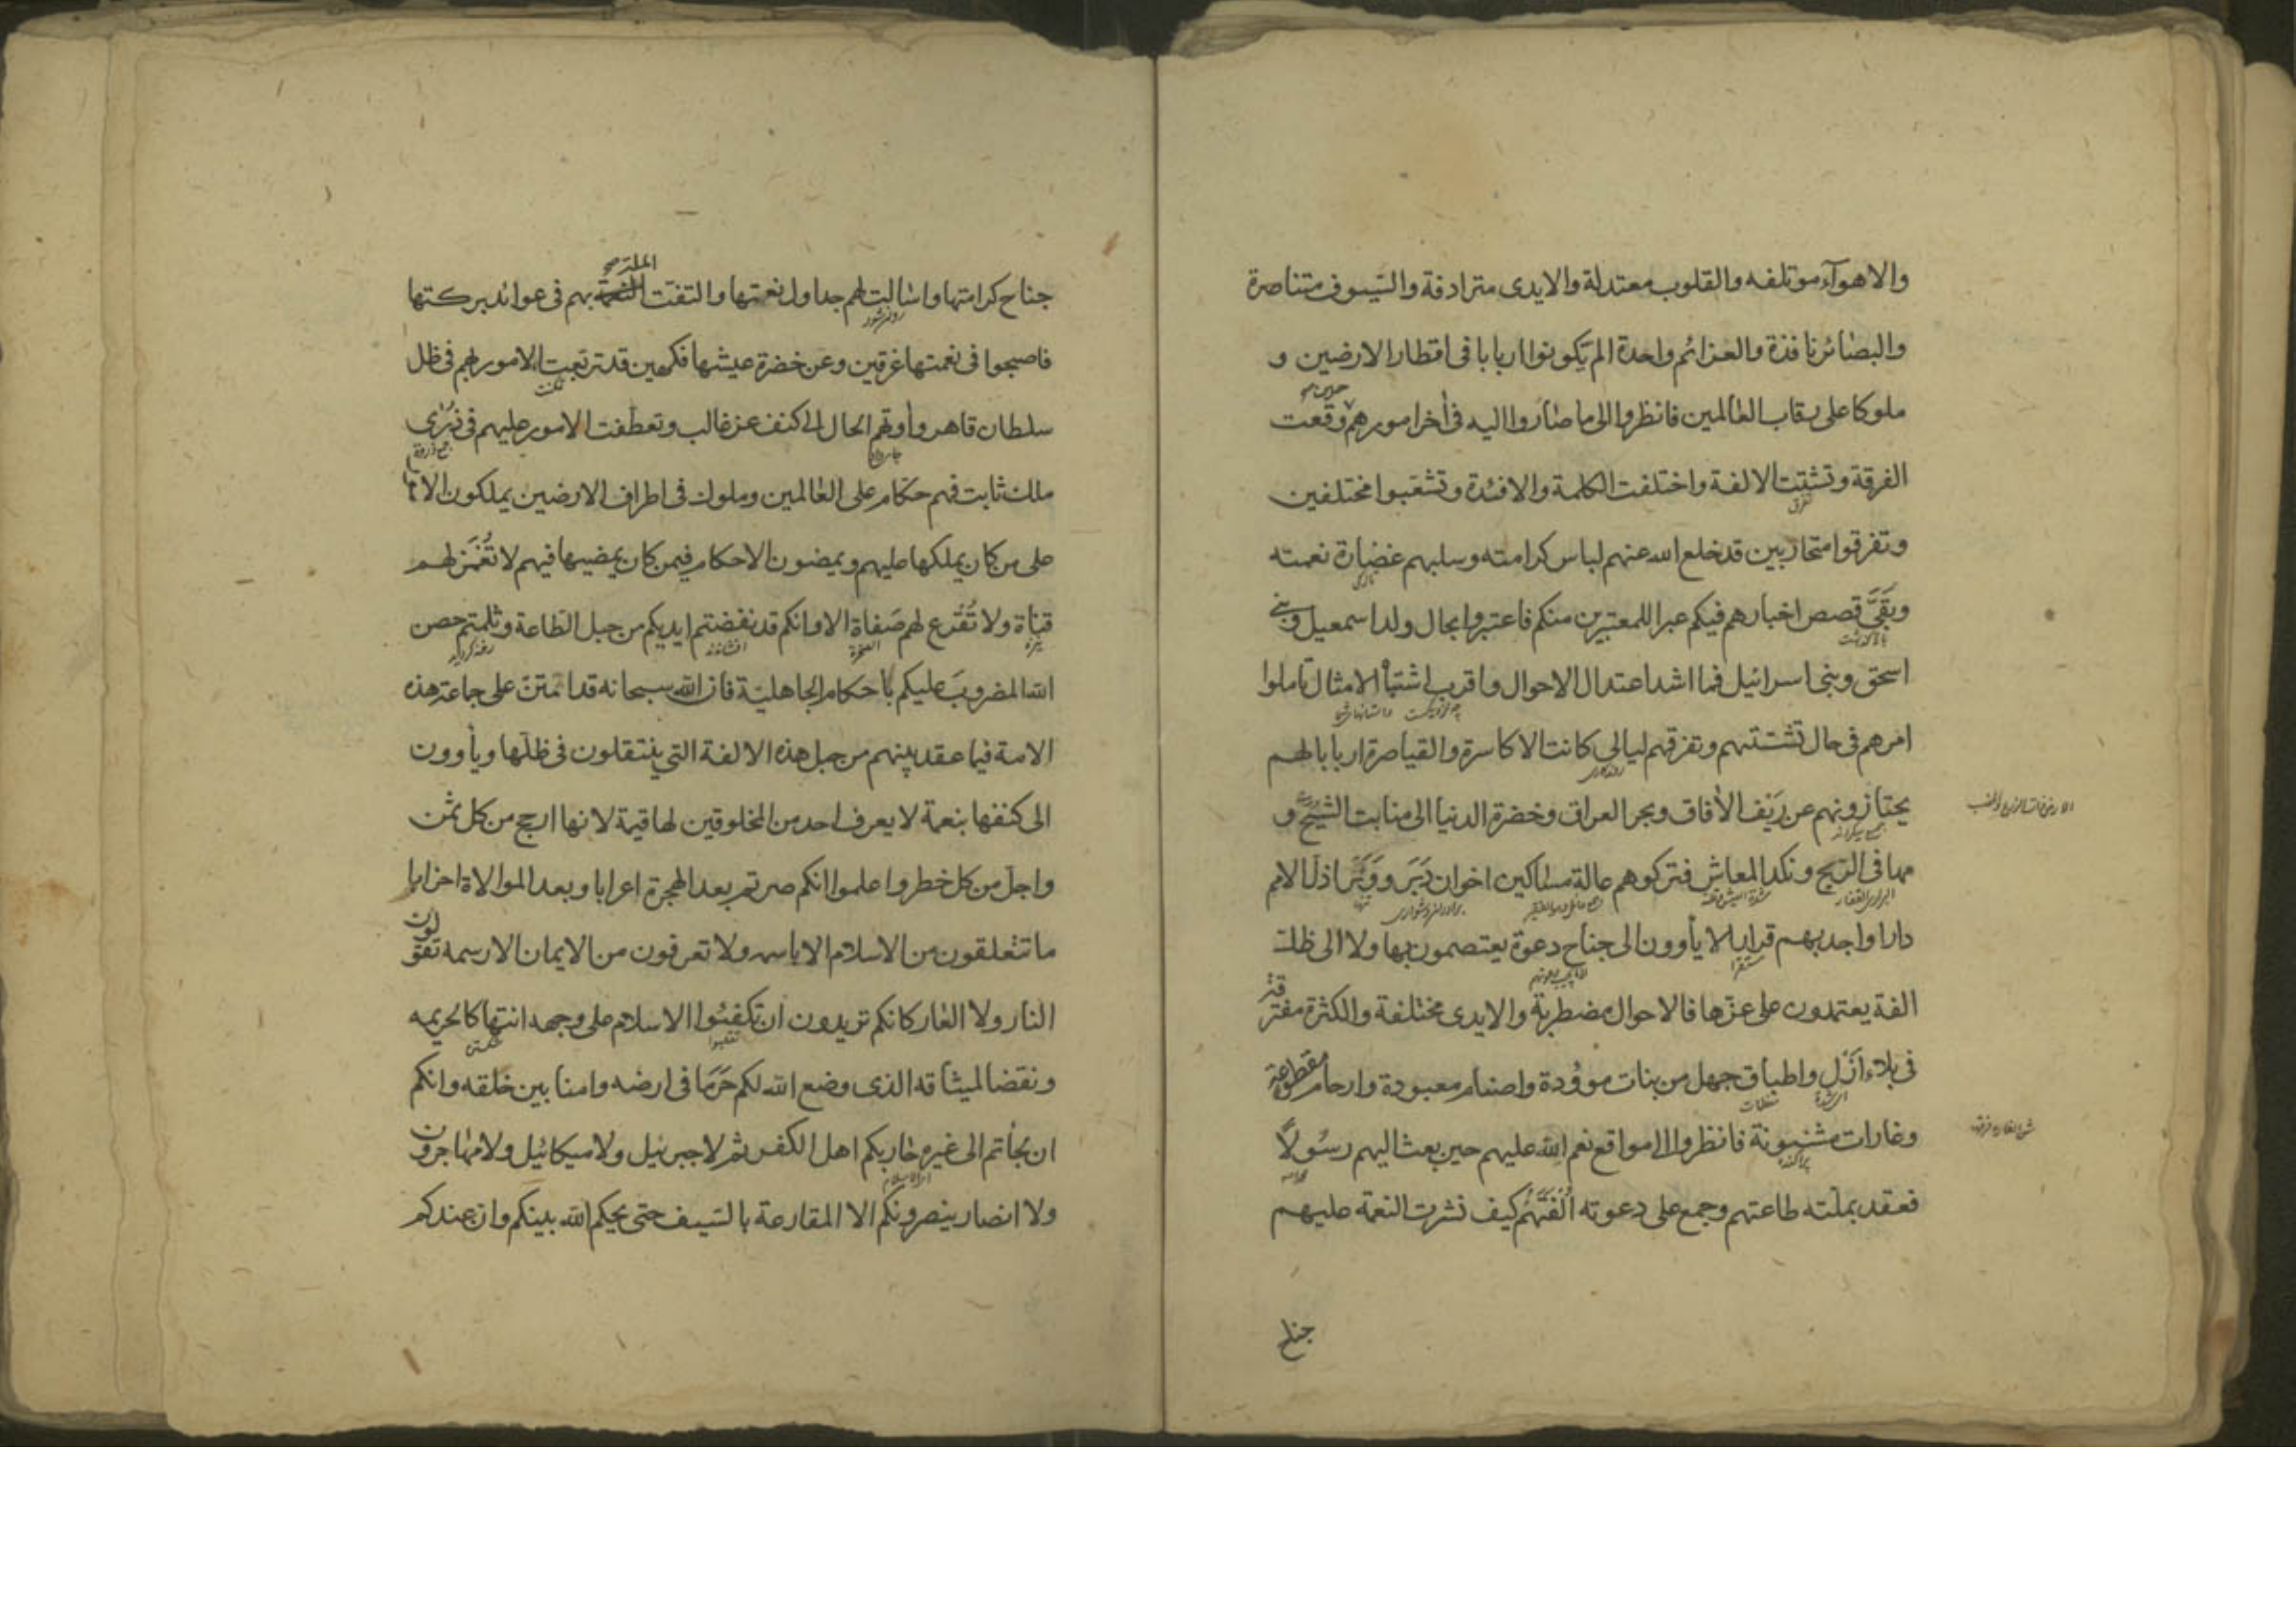 والاهوآء موتلفه والقلوب معتدلة والايدى مترادفة والسّيوف متناصرة
والبصائر نافذة والعزائم واحدة الم يكونوا اربابا فى اقطار الارضين و
ملوكا على رقاب العالمين فانظروا الى ما صاروا اليه فى أخر امورهم وقعت
حين
الفرقة وتشتت الالفة واختلفت الكلمة والافئدة وتشعبوا مختلفين
وتفرقوا متحاربين قد خلع الله عنهم لباس كرامته وسلبهم غضارة نعمته
وبَقَىَّ قصص اخبارهم فيكم عبرا للمعتبرين منكم فاعتبروا بحال ولد اسمعيل وبنى
اسحق وبنى اسرائيل فما اشد اعتدال الاحوال واقرب اشتباه الامثال تأملوا
امرهم فى حال تشتتهم وتفرقهم ليالى كانت الاكاسرة والقياصرة اربابا لهم
يحتازونهم عن رَيف الأفاق وبحر العراق وخضرة الدنيا الى منابت الشيح و
مهافى الريح ونكد المعاش فتركوهم عالة مساكين اخوان دَبَر ووَبَر اذل الامم
دارا واجدبهم قرارا لا يأوون الى جناح دعوة يعتصمون بها ولا الى ظل
الفة يعتمدون على عزّها فالاحوال مضطربة والايدى مختلفة والكثرة مفترقة
فى بلاء اَزْلٍ واطباق جهل من بنات موؤدة واصنام معبودة وارحام مقطوعة
وغارات مشنونة فانظروا الى مواقع نعم الله عليهم حين بعث اليهم رسُولاً
فعقد بملّته طاعتهم وجمع على دعوته اُلْفَتَهُم كيف نشرت النعمة عليهم
جناح
جناح كرامتها واسالت لهم جداول نعمتها والتفّت الملة بهم فى عوائد بركتها
فاصبحوا فى نعمتها غرقين وعن خضرة عيشها فكهين قد تربعت الامور بهم فى ظل
سلطان قاهر وأوتهم الحال الى كنف عز غالب وتعطّفت الامور عليهم فى ذُرى
ملك ثابت فهم حكام على العالمين وملوك فى اطراف الارضين يملكون الامور
على من كان يملكها عليهم ويمضون الاحكام فيمن كان يمضيها فيهم لا تُغْمَز لهم
قناة ولا تُقْرَع لهم صَفاة الا وانكم قد نفضتم ايديكم من حبل الطّاعة وثلمتم حصن
الله المضروبَ عليكم باحكام الجاهليّة فان الله سبحانه قد امتنّ على جاعة هذه
الامة فيما عقد بينهم من حبل هذه الالفة التى ينتقلون فى ظلّها ويأوون
الى كنفها بنعمة لا يعرف احد من المخلوقين لها قيمة لانها ارجح من كل ثمن
واجل من كل خطر واعلموا انكم صرتم بعد الهجرة اعرابا وبعد الموالاة احزابا
ما تتعلقون من الاسلام الا باسمه ولا تعرفون من الايمان الا رسمه تقولون
النار ولا العار كانكم تريدون ان تكفئوا الاسلام على وجهه انتهاكا لحريمه
ونقضا لميثاقه الذى وضع الله لكم حَرَمًا فى ارضه وامنا بين خلقه وانكم
ان لجأتم الى غيره حاربكم اهل الكفر ثم لا جبرئيل ولا ميكائيل ولا مهاجرون
ولا انصار ينصرونكم الا المقارعة بالسّيف حتى يحكم الله بينكم وان عندكم